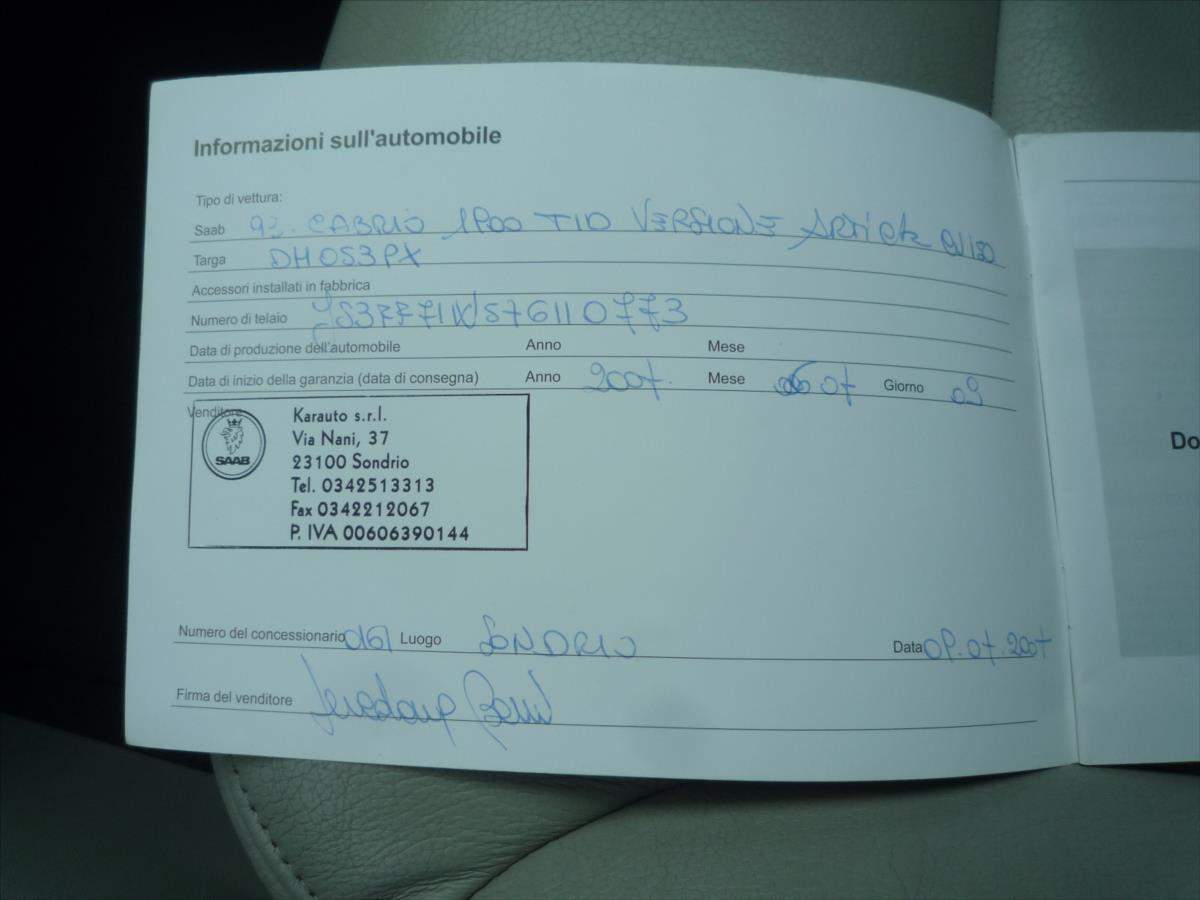 Informazioni sull'automobile
Tipo di vettura:
Saab 93. CABRIO 1900 TID VERSIONE
Targa DH053PX
Accessori installati in fabbrica
Numero di telaio YS3FF71W576110773
Data di produzione dell'automobile Anno Mese
Data di inizio della garanzia (data di consegna) Anno 2007. Mese 07 Giorno 09
Venditore
SAAB
Karauto s.r.l.
Via Nani, 37
23100 Sondrio
Tel. 0342513313
Fax 0342212067
P. IVA 00606390144
Numero del concessionario 061 Luogo SONDRIO Data 09.07.2007
Firma del venditore
Do